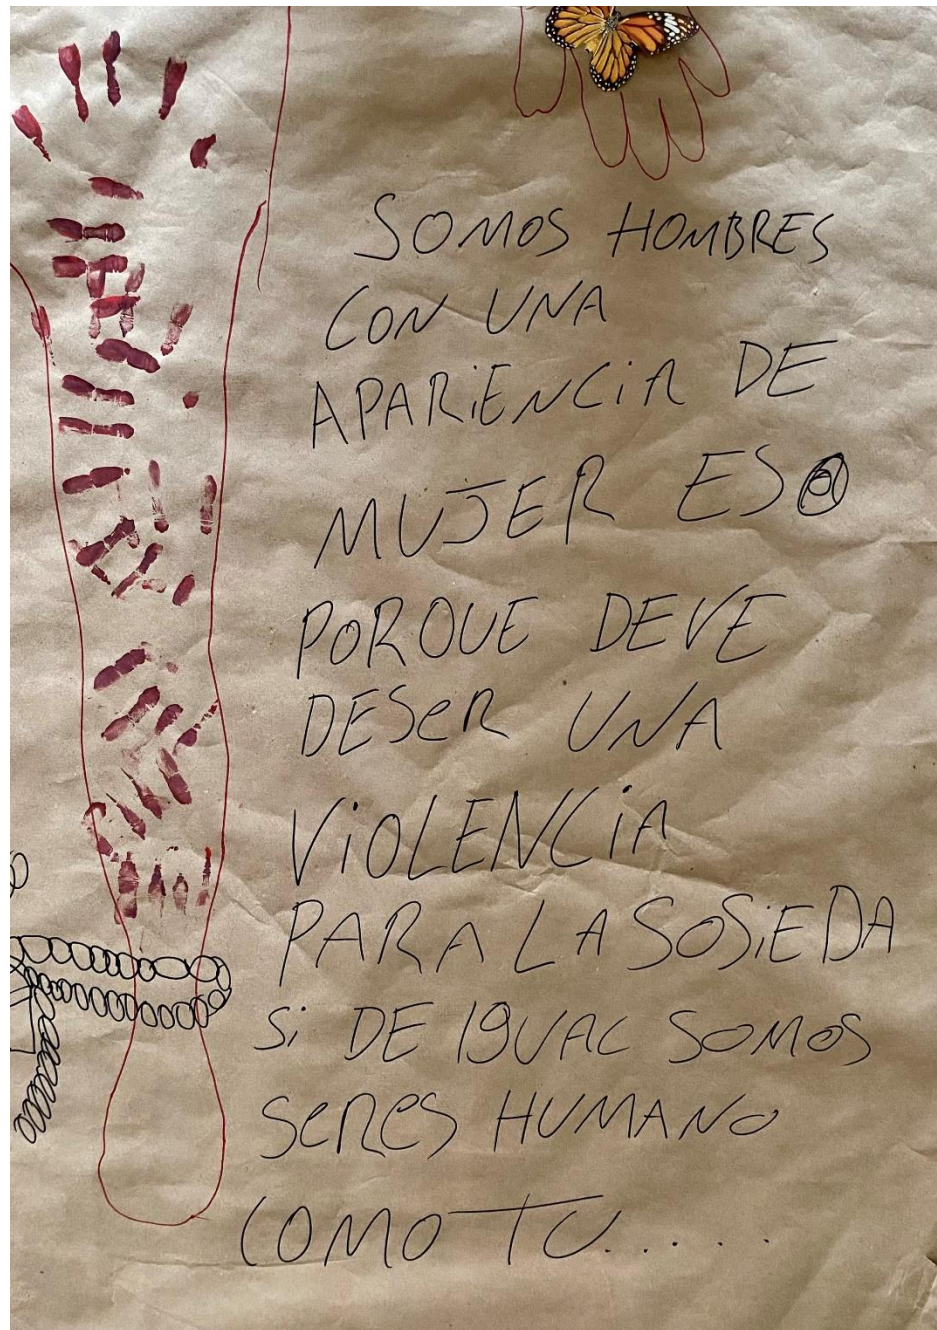 SOMOS HOMBRES
CON UNA
APARiENCiA DE
MUJER ESO
PORQUE DEVE
DESeR UNA
ViOLENCiA
PARA LA SOSiEDA
Si DE IGUAL SOMOS
SeReS HUMANO
COMO TU.....